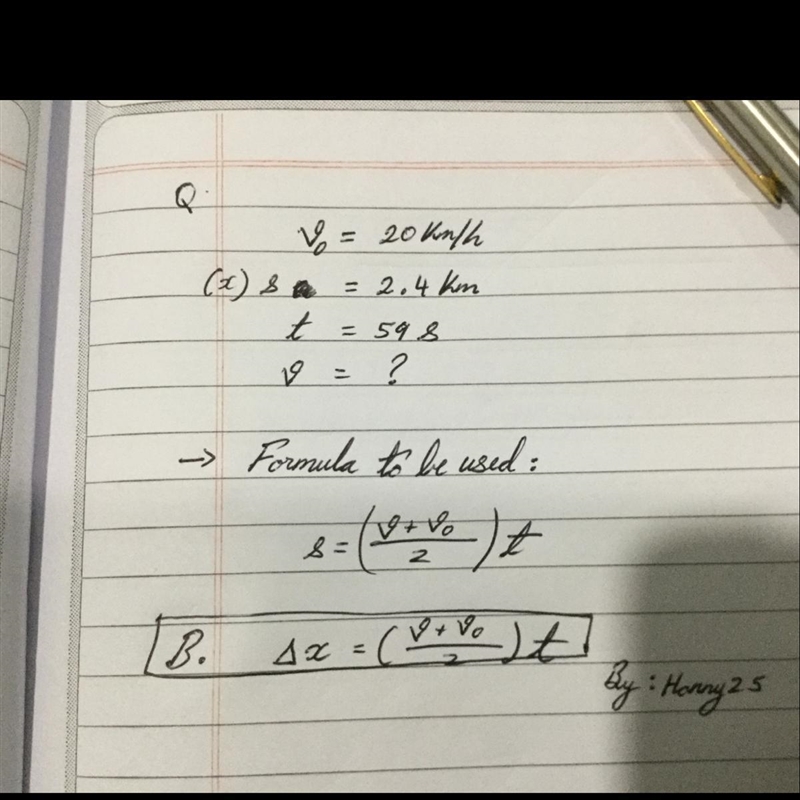 Q.
v₀ = 20 Km/h
(x) s = 2.4 Km
t = 59 s
v = ?
→ Formula to be used:
s = ((v + v₀)/2) t
B. Δx = ((v + v₀)/2) t
By: Hanny25